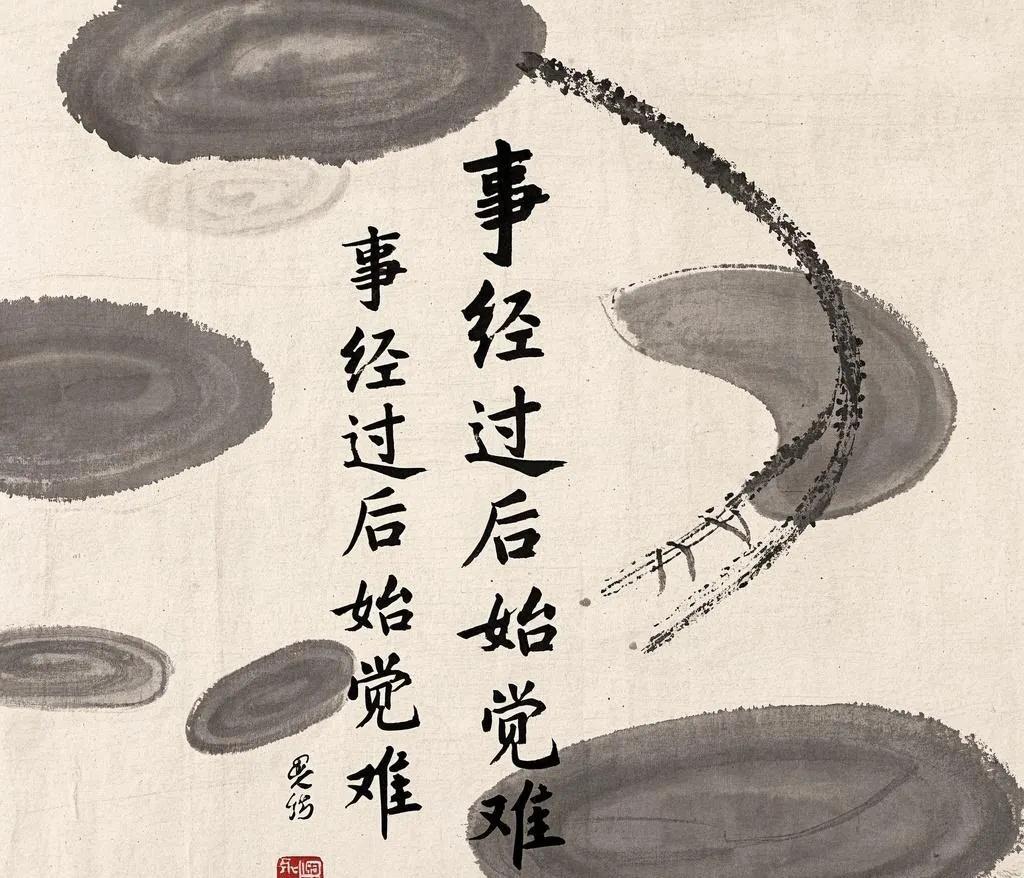 事经过后始觉难
事经过后始觉难